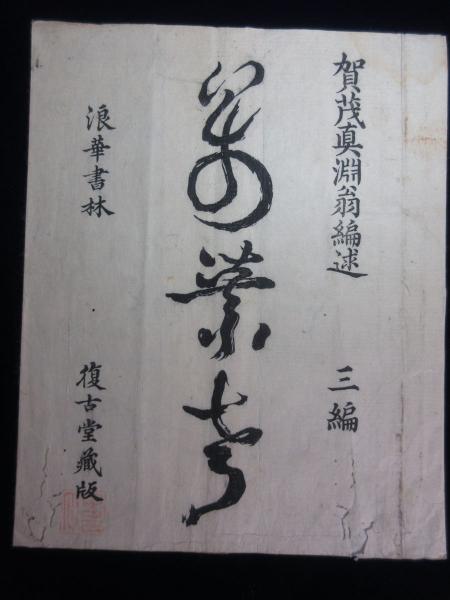 賀茂真淵翁編述 三編
萬葉考
浪華書林 復古堂藏版